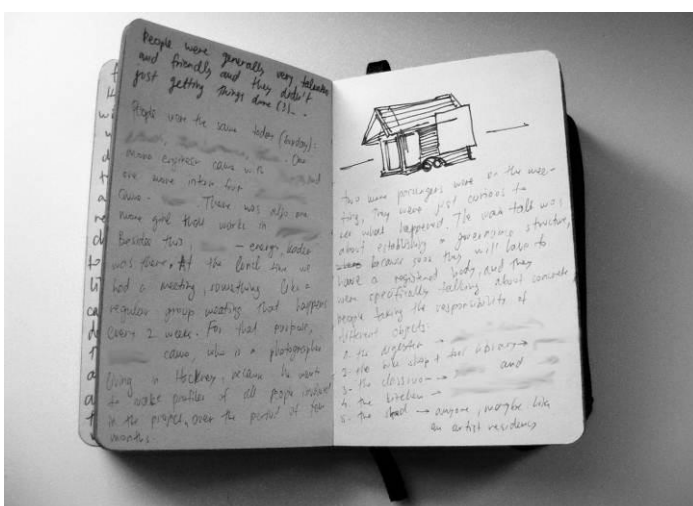 People were generally very talkative
and friendly and they didn't
just getting things done (3).
People were the same today (Sunday):
One
more engineer came with and
one more intern from
came. There was also one
more girl that works in
Besides this, — energy leader
was there. At the lunch time we
had a meeting, something like a
regular group meeting that happens
every 2 weeks. For that purpose,
came, who is a photographer
living in Hackney, because he wants
to make profiles of all people involved
in the project, over the period of few
months.
two more passengers were on the mee-
ting, they were just curious to
see what happened. The main talk was
about establishing a governing structure,
because soon they will have to
have a registered body, and they
were specifically talking about concrete
people taking the responsibility of
different objects:
1. the digester →
2. the bike shop + tool library →
3. the classroom → and
4. the kitchen →
5. the shed → anyone, maybe like
an artist residency